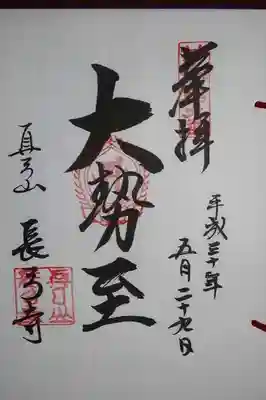 奉拝
平成三十年
五月二十九日
大勢至
真弓山
長弓寺